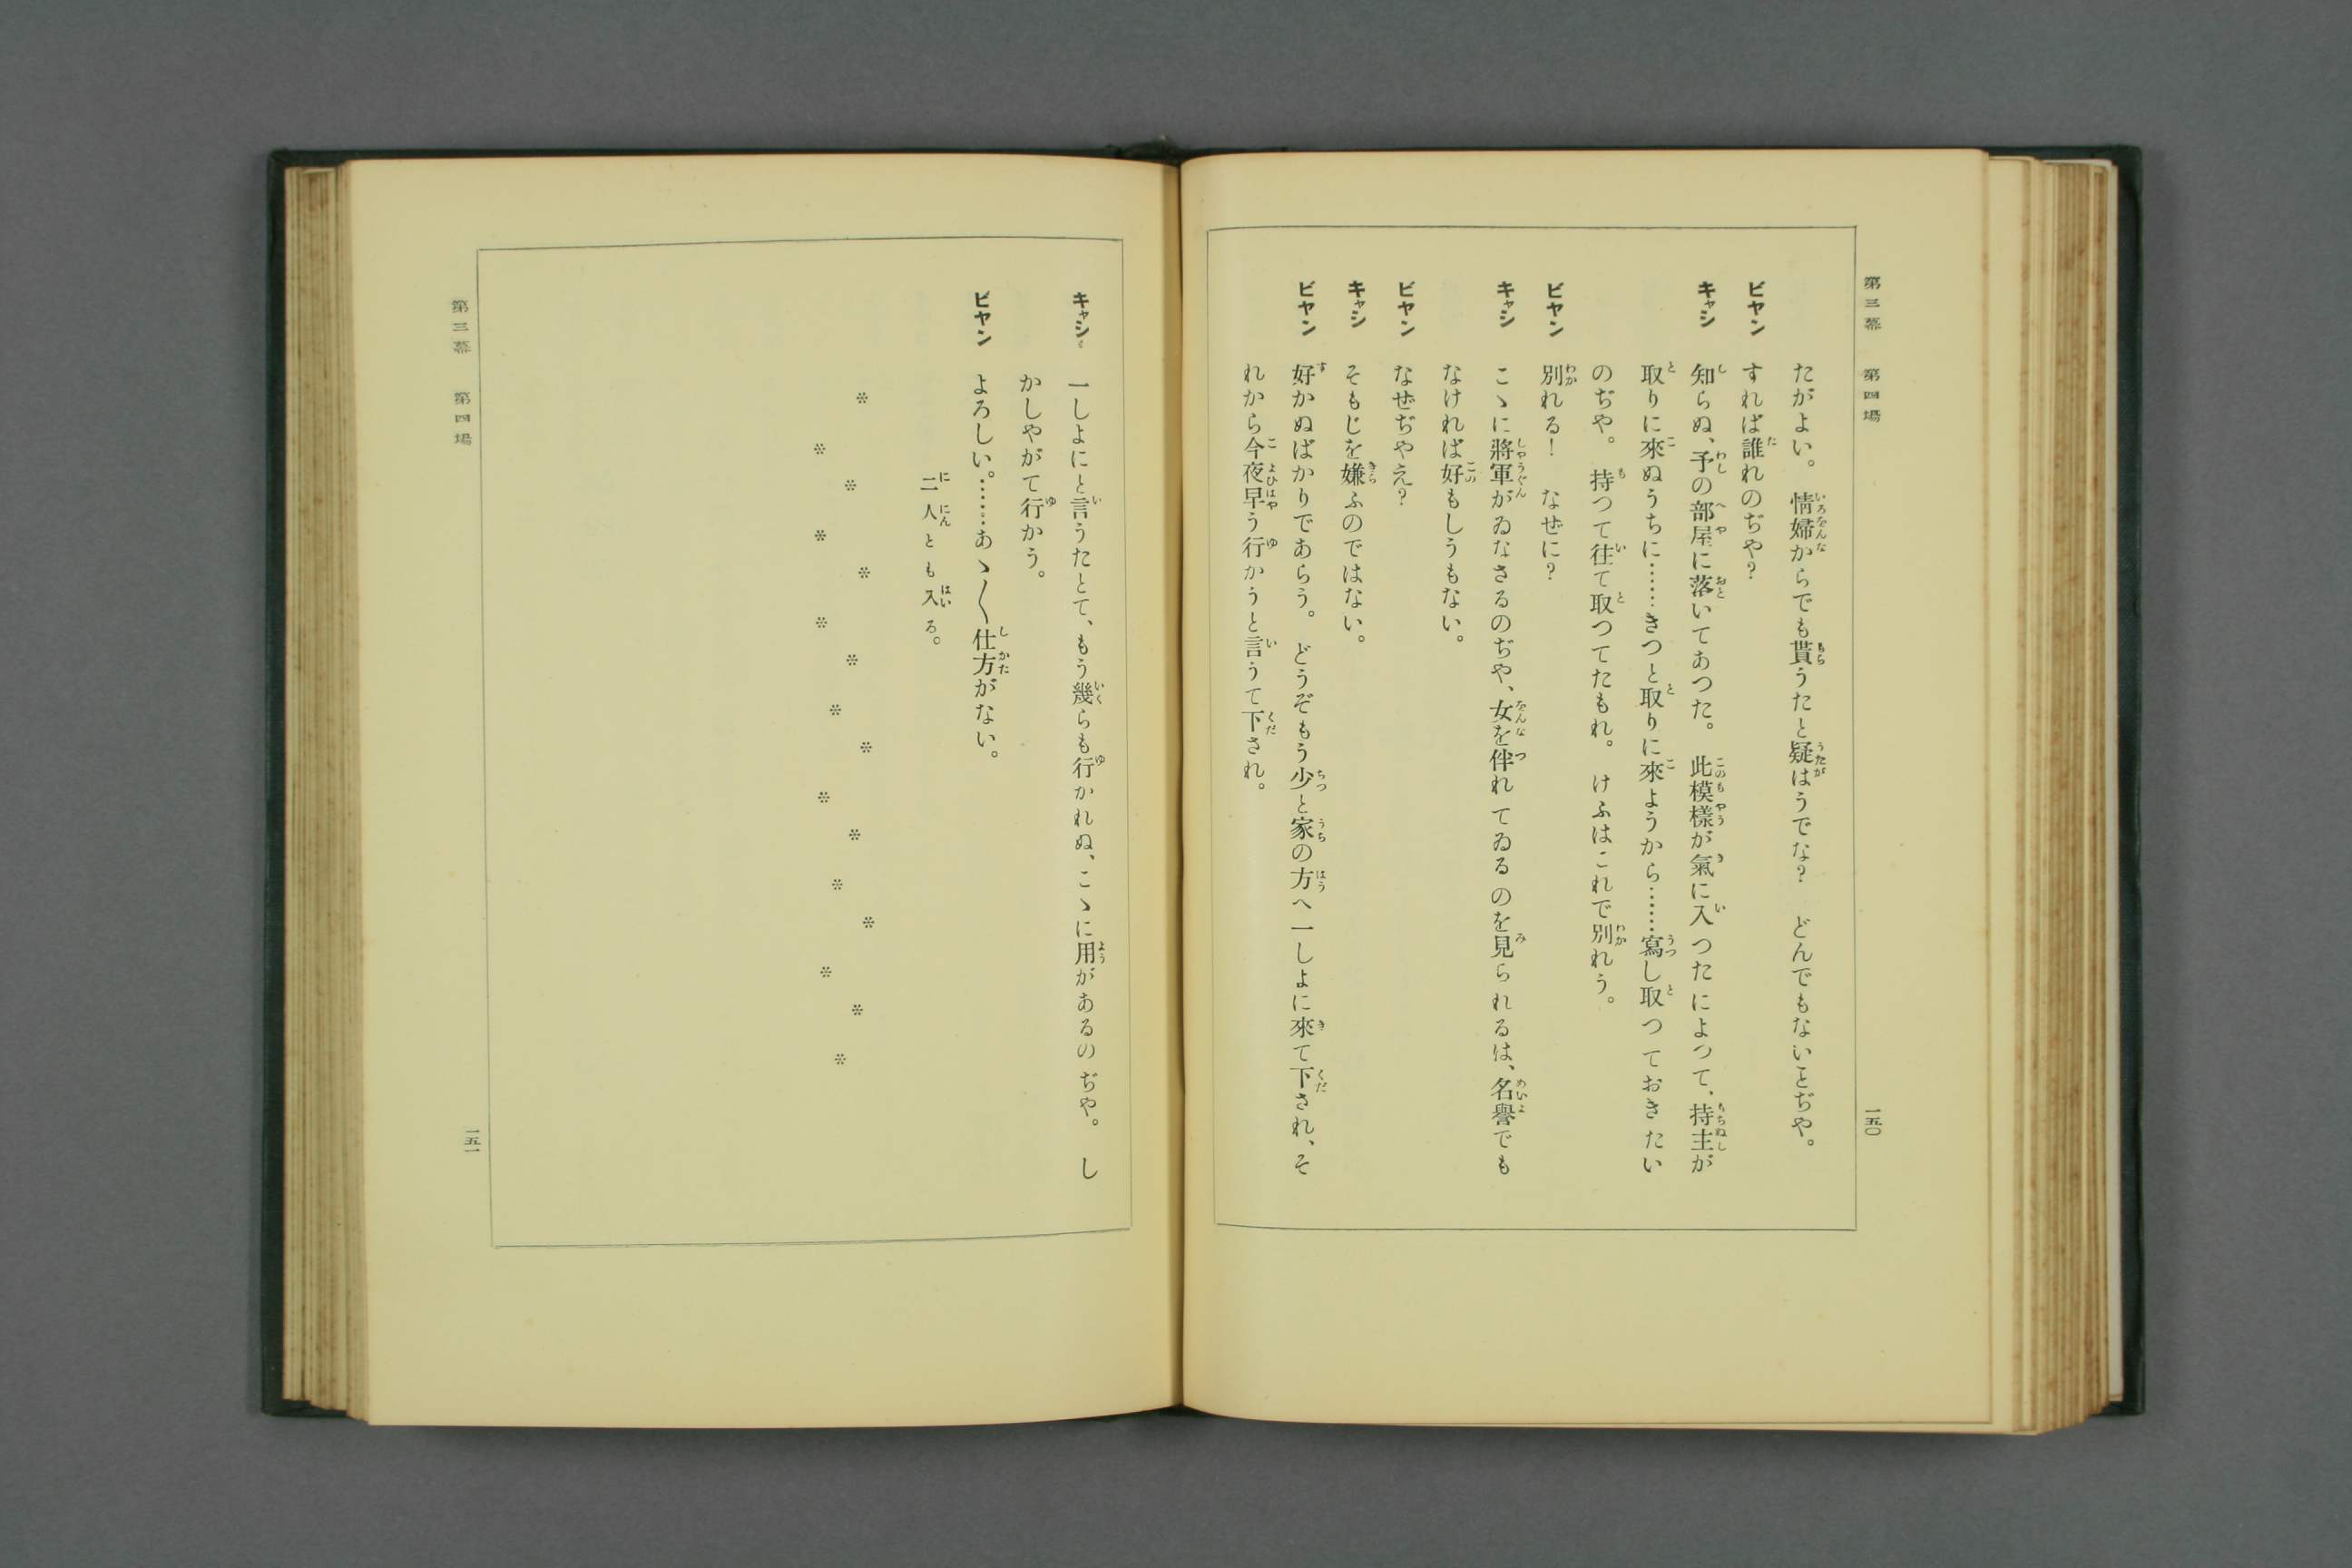 第三幕　第四場
一五〇
たがよい。　情婦からでも貰うたと疑はうでな？　どんでもないことぢや。
ビヤン　すれば誰れのぢや？
キャシ　知らぬ、予の部屋に落いてあつた。　此模樣が氣に入つたによつて、持主が
取りに來ぬうちに……きつと取りに來ようから……寫し取つておきたい
のぢや。　持つて往て取つてたもれ。　けふはこれで別れう。
ビヤン　別れる！　なぜに？
キャシ　こゝに將軍がゐなさるのぢや、女を伴れてゐるのを見られるは、名譽でも
なければ好もしうもない。
ビヤン　なぜぢやえ？
キャシ　そもじを嫌ふのではない。
ビヤン　好かぬばかりであらう。　どうぞもう少と家の方へ一しよに來て下され、そ
れから今夜早う行かうと言うて下され。
キャシ　一しよにと言うたとて、もう幾らも行かれぬ、こゝに用があるのぢや。　し
かしやがて行かう。
ビヤン　よろしい。……あゝ〱仕方がない。
二人とも入る。
＊　＊　＊　＊　＊　＊　＊　＊　＊　＊　＊　＊　＊　＊　＊　＊
第三幕　第四場
一五一